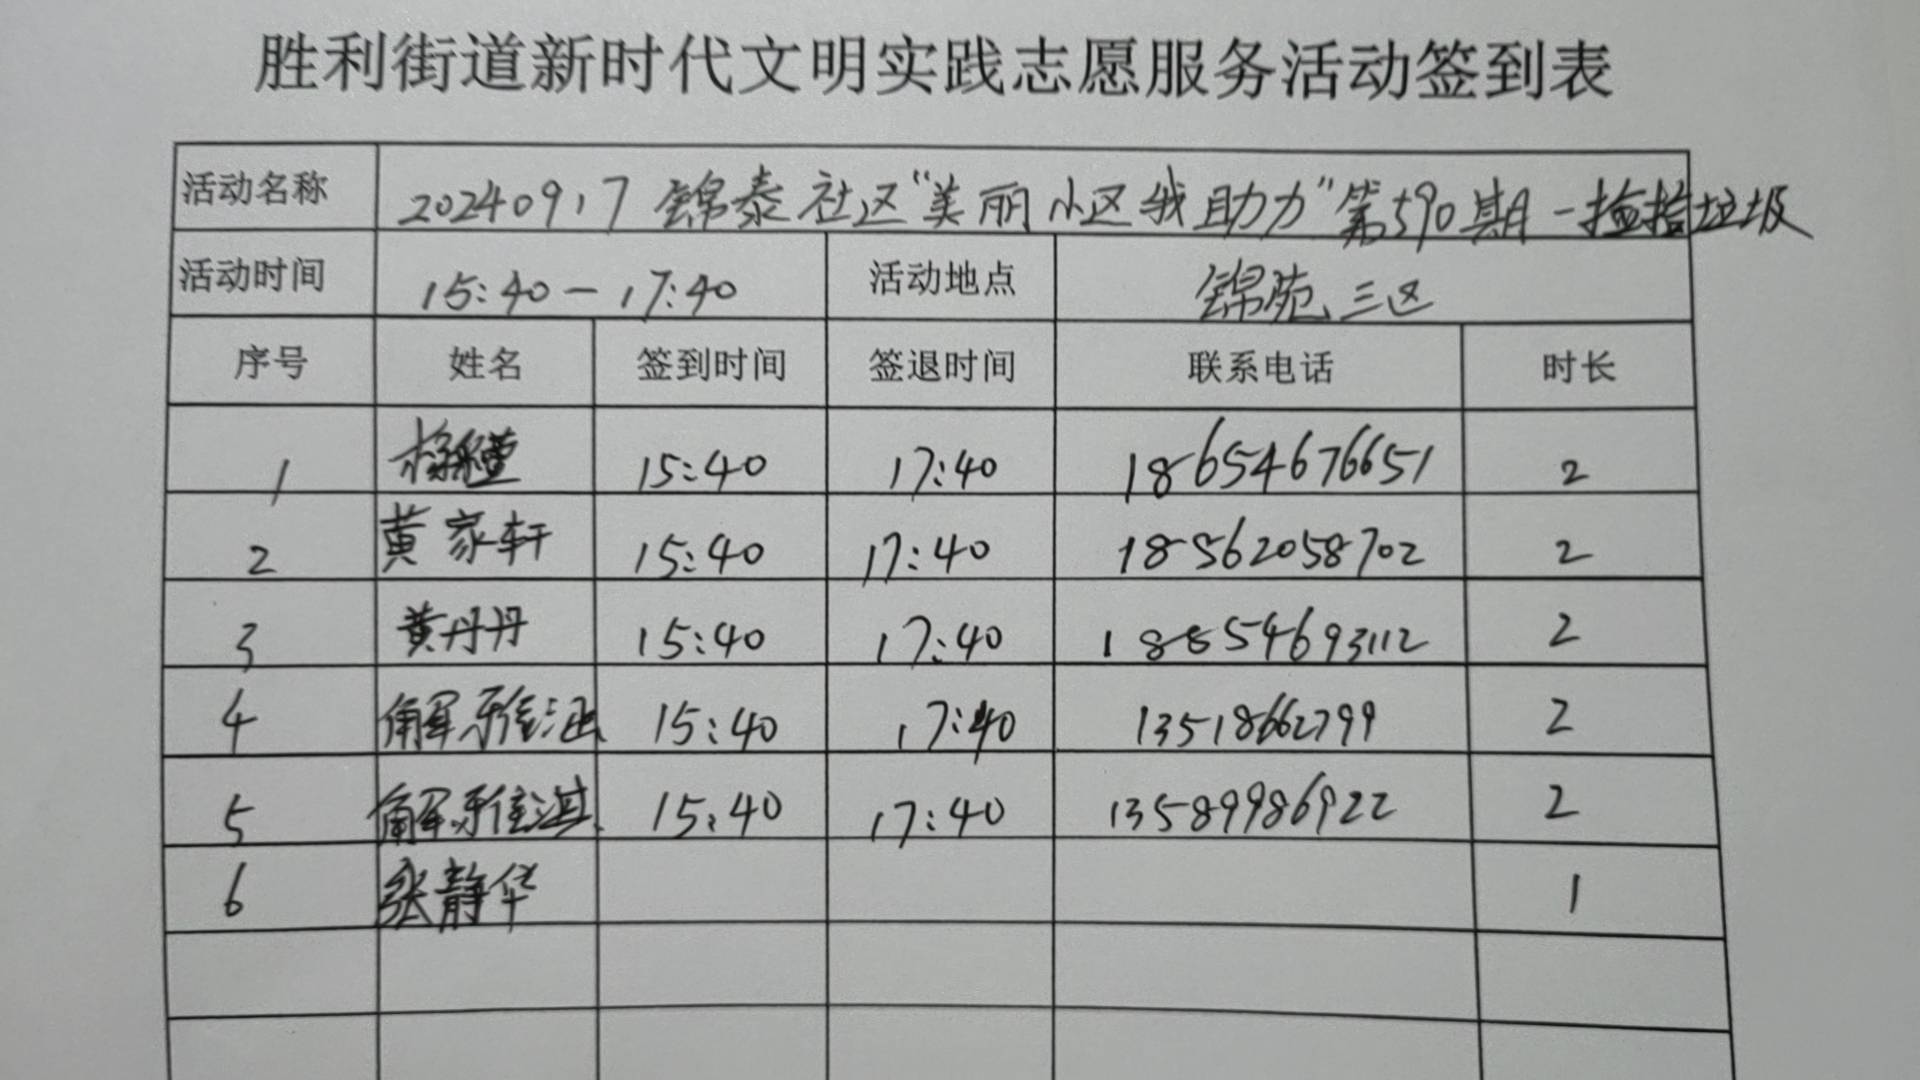 胜利街道新时代文明实践志愿服务活动签到表
活动名称 20240917 锦泰社区“美丽小区我助力”第590期-捡拾垃圾
活动时间 15:40-17:40 活动地点 锦苑三区
序号 姓名 签到时间 签退时间 联系电话 时长
1 15:40 17:40 18654676651 2
2 黄家轩 15:40 17:40 18562058702 2
3 黄丹丹 15:40 17:40 18854693112 2
4 解雅涵 15:40 17:40 13518662799 2
5 解雅淇 15:40 17:40 13589986922 2
6 张静华 1